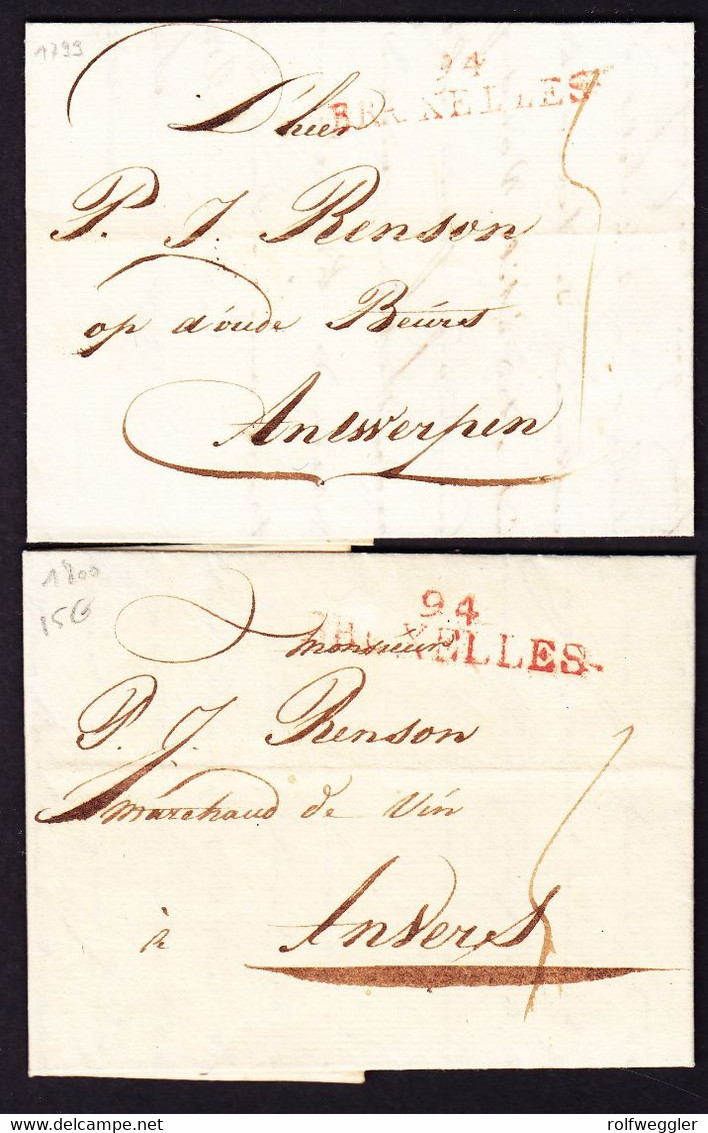 1799
94
BRUXELLES
D'heer
P. J. Renson
op d'oude Beurs
Antwerpen
1800
15G
94
BRUXELLES
monsieur
P. J. Renson
marchand de Vin
à Anvers
rolfweggler